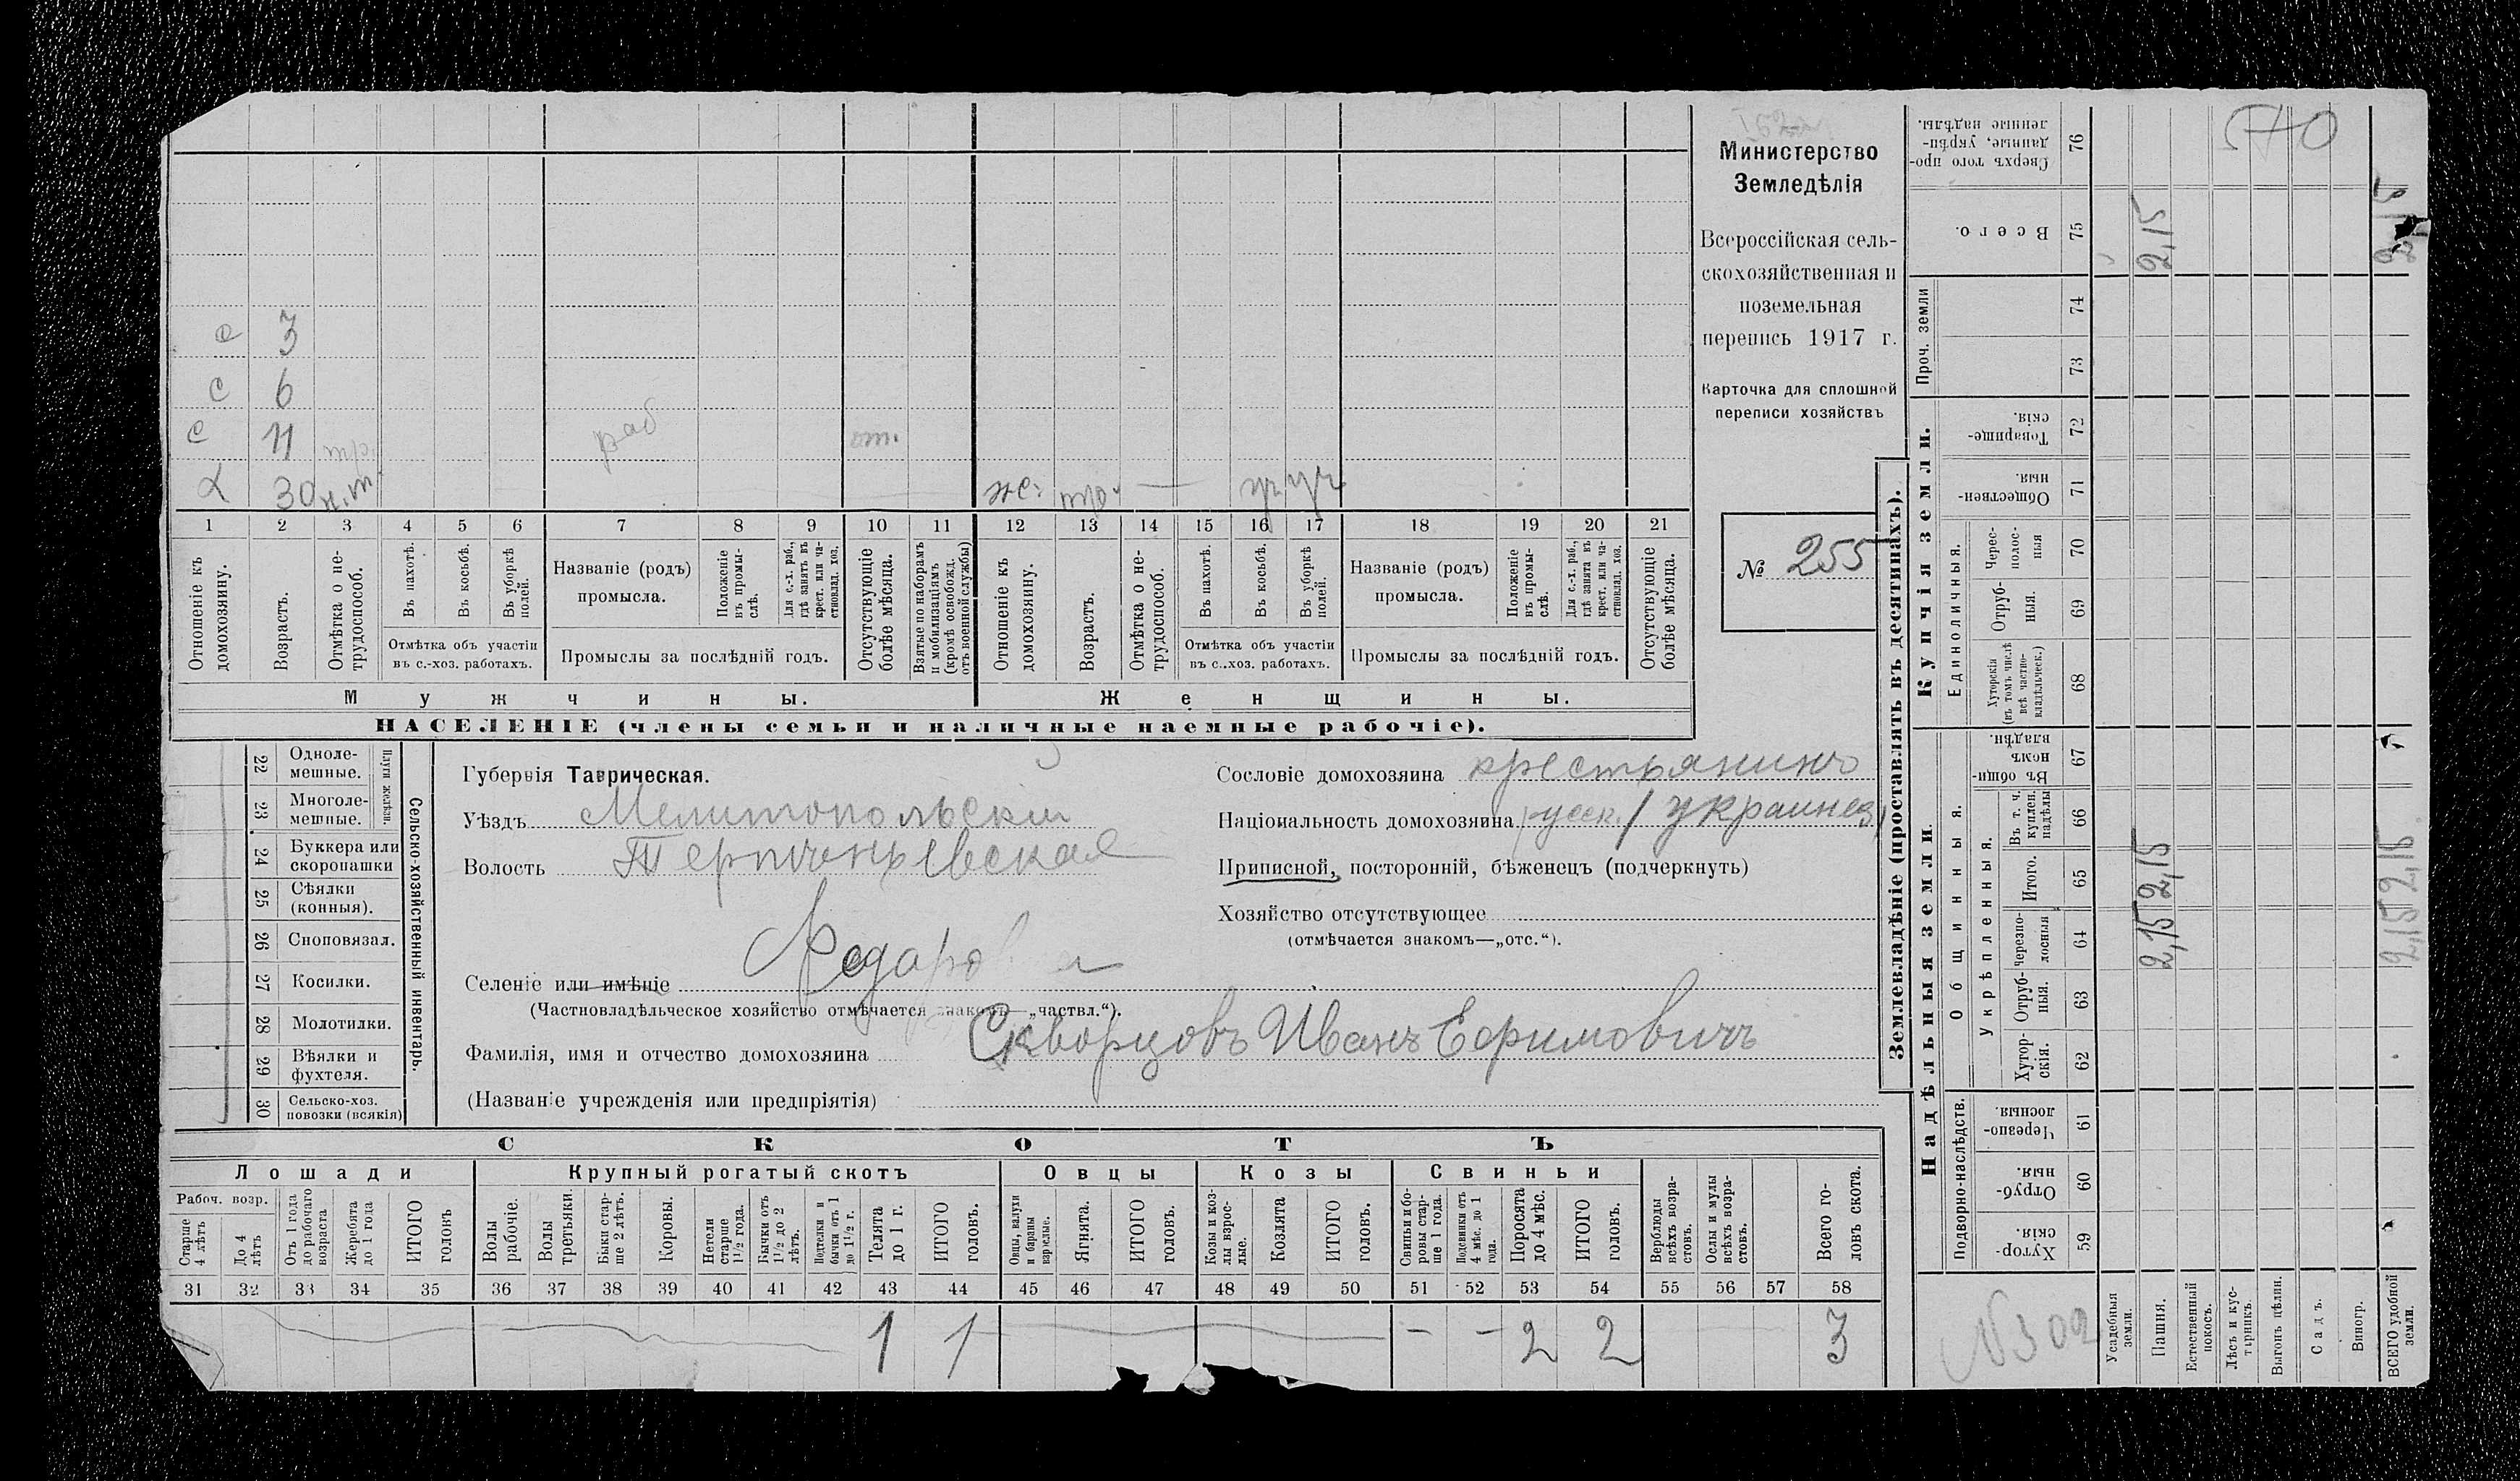 Министерство
Земледѣлія
Всероссійская сель-
скохозяйственная и
поземельная
перепись 1917 г.
Карточка для сплошной
переписи хозяйствъ
№ 255
с 3
с 6
с 11 раб от.
30 н.т. ж. тр. —
1 2 3 4 5 6 7 8 9 10 11 12 13 14 15 16 17 18 19 20 21
Отношеніе къ домохозяину.
Возрастъ.
Отмѣтка о не-
трудоспособ.
Въ пахотѣ.
Въ косьбѣ.
Въ уборкѣ полей.
Отмѣтка объ участіи
въ с.-хоз. работахъ.
Названіе (родъ)
промысла.
Положеніе
въ промы-
слѣ.
Для с.-х. раб.,
гдѣ занятъ въ
крест. или ча-
стновлад. хоз.
Промыслы за послѣдній годъ.
Отсутствующіе
болѣе мѣсяца.
Взятые по наборамъ
и мобилизаціямъ
(кромѣ освобожд.
отъ военной службы)
Отношеніе къ
домохозяину.
Возрастъ.
Отмѣтка о не-
трудоспособ.
Въ пахотѣ.
Въ косьбѣ.
Въ уборкѣ
полей.
Отмѣтка объ участіи
въ с.-хоз. работахъ.
Названіе (родъ)
промысла.
Положеніе
въ промы-
слѣ.
Для с.-х. раб.,
гдѣ занята въ
крест. или ча-
стновлад. хоз.
Промыслы за послѣдній годъ.
Отсутствующіе
болѣе мѣсяца.
Мужчины. Женщины.
НАСЕЛЕНІЕ (члены семьи и наличные наемные рабочіе).
22 Одноле-
мешные.
23 Многоле-
мешные.
Плуги желѣзн.
24 Буккера или
скоропашки
25 Сѣялки
(конныя).
26 Сноповязал.
27 Косилки.
28 Молотилки.
29 Вѣялки и
фухтеля.
30 Сельско-хоз.
повозки (всякія)
Сельско-хозяйственный инвентарь.
Губернія Таврическая.
Уѣздъ Мелитопольскій
Волость Терпѣньевская
Селеніе или имѣніе
(Частновладѣльческое хозяйство отмѣчается знакомъ—„частвл.“).
Фамилія, имя и отчество домохозяина Скворцовъ Иванъ Ефимовичъ
(Названіе учрежденія или предпріятія)
Сословіе домохозяина крестьянинъ
Національность домохозяина русск. / украинец
Приписной, посторонній, бѣженецъ (подчеркнуть)
Хозяйство отсутствующее
(отмѣчается знакомъ—„отс.“).
СКОТЪ
Лошади Крупный рогатый скотъ Овцы Козы Свиньи
Рабоч. возр.
Старше
4 лѣтъ
До 4
лѣтъ
Отъ 1 года
до рабочаго
возраста
Жеребята
до 1 года
ИТОГО
головъ
Волы
рабочіе.
Волы
третьяки.
Быки стар-
ше 2 лѣтъ.
Коровы.
Нетели
старше
1½ года.
Бычки отъ
1½ до 2
лѣтъ.
Подтелки и
бычки отъ 1
до 1½ г.
Телята
до 1 г.
ИТОГО
головъ.
Овцы, валухи
и бараны
взрослые.
Ягнята.
ИТОГО
головъ.
Козы и коз-
лы взрос-
лые.
Козлята
ИТОГО
головъ.
Свиньи и бо-
ровы стар-
ше 1 года.
Подсвинки отъ
4 мѣс. до 1
года.
Поросята
до 4 мѣс.
ИТОГО
головъ.
Верблюды
всѣхъ возра-
стовъ.
Ослы и мулы
всѣхъ возра-
стовъ.
Всего го-
ловъ скота.
31 32 33 34 35 36 37 38 39 40 41 42 43 44 45 46 47 48 49 50 51 52 53 54 55 56 57 58
1 1 — — 2 2 3
Землевладѣніе (проставлять въ десятинахъ).
Надѣльныя земли. Купчія земли. Проч. земли
Подворно-наслѣдств. Общинныя. Укрѣпленныя. Единоличныя.
Хутор-
скія. 59
Отруб-
ныя. 60
Черезпо-
лосныя. 61
Хутор-
скія. 62
Отруб-
ныя. 63
Черезпо-
лосныя 64
Итого. 65
Въ т. ч.
куплен.
надѣлы 66
Въ общин-
номъ
владѣн. 67
Хуторскія
(въ томъ числѣ
всѣ частно-
владѣльческ.) 68
Отруб-
ныя. 69
Черес-
полос-
ныя 70
Обществен-
ныя. 71
Товарище-
скія. 72
73
74
Всего. 75
Сверхъ того про-
данные, укрѣп-
ленные надѣлы. 76
Усадебныя
земли.
Пашня. 2,15 2,15 2,15
Естественный
покосъ.
Лѣсъ и кус-
тарникъ.
Выгонъ цѣлин.
Садъ.
Виногр.
ВСЕГО удобной
земли. 2,15 2,15 2,15
N 302